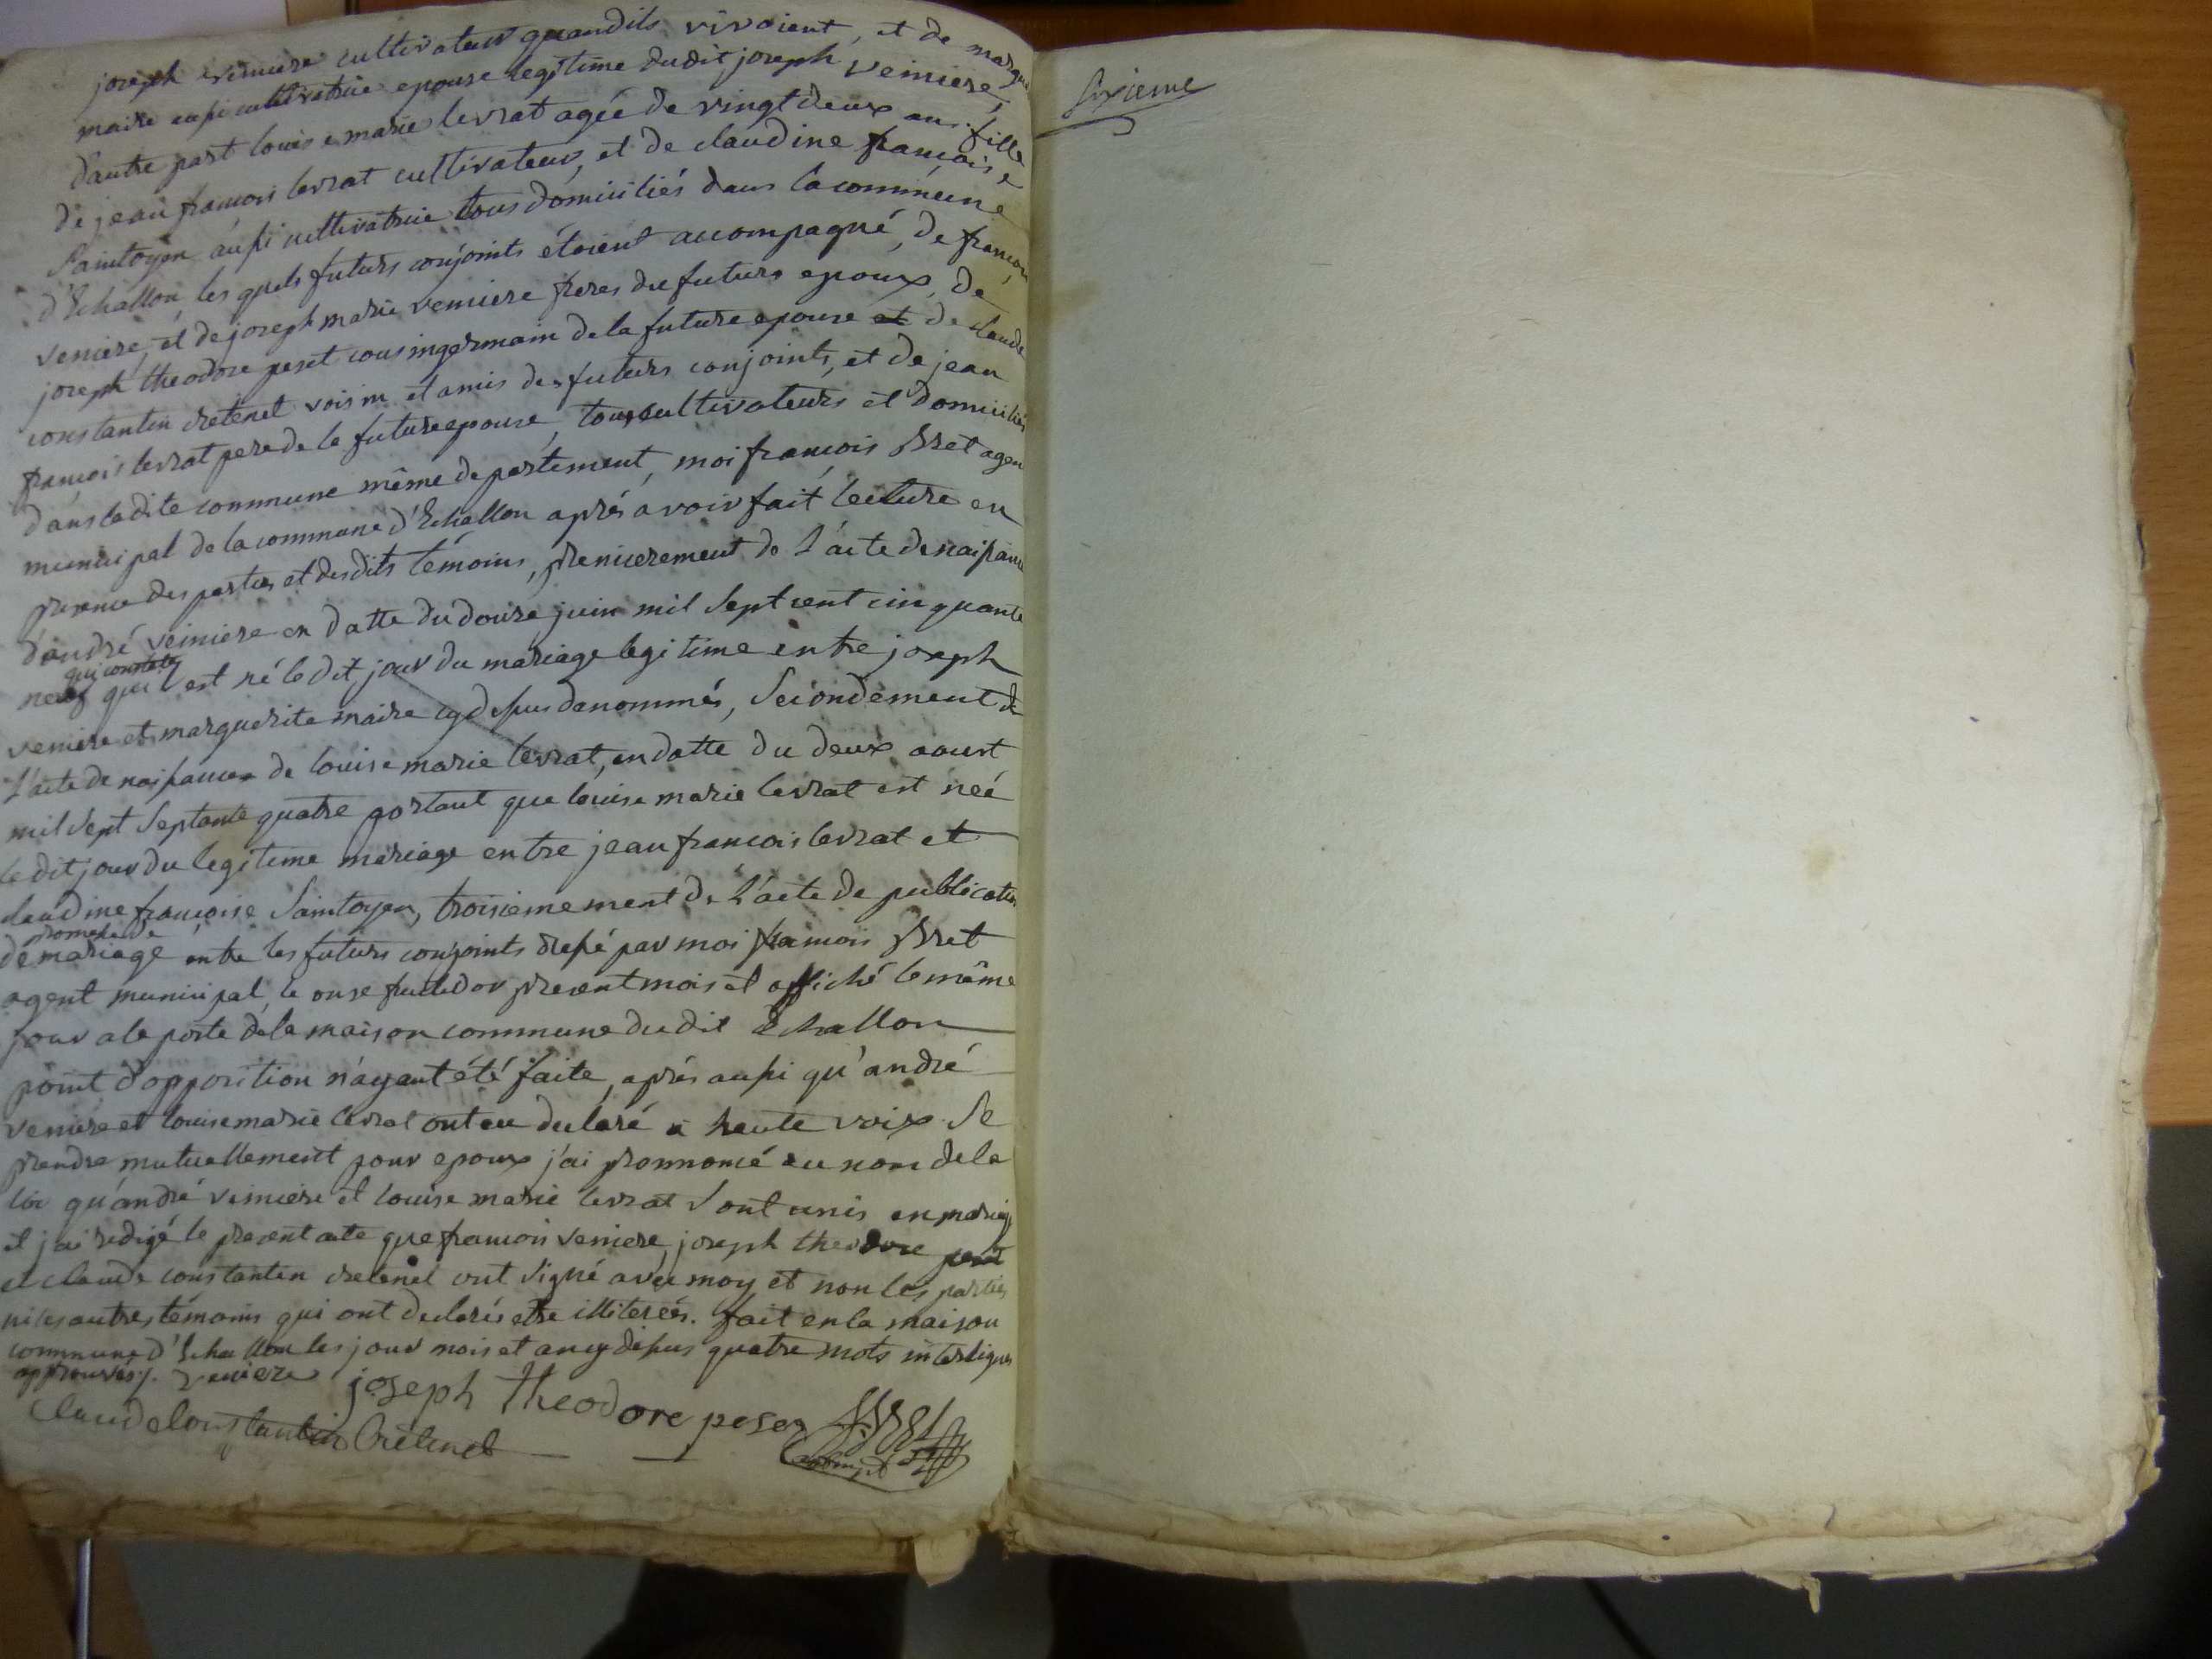 joseph veiniere cultivateur quandils vivoient, et de marque
maire aussi cultivatrice epouse legitime dudit joseph veiniere,
d'autre part louise marie levrat agée de vingt deux ans fille
de jean francois levrat cultivateur, et de claudine francoise
Saintoyen aussi cultivatrice tous domiciliés dans la commune
d'Echallon, les quels futurs conjoints étoient accompagné, de francois
veniere, et de joseph marie veniere freres du futurs epoux, de
joseph theodore peset cousingermain de la future epouse et de claude
constantin cretenet voisin et amis des futurs conjoints, et de jean
francois levrat pere de la future epouse, tous cultivateurs et domiciliés
dans ladite commune même departement, moi francois Bret agen
municipal de la commune d'Echallon aprés avoir fait lecture en
presence des parties et desdits témoins, premierement de l'acte de naissance
d'andré veiniere en datte du douse juin mil sept cent cinquante
qui constate
neuf qu'il est né ledit jour du mariage legitime entre joseph
veniere et marguerite maire cydessus denommés, Secondement de
l'acte de naissance de louise marie levrat, en datte du deux aoust
mil sept septante quatre portant que louise marie levrat est neé
ledit jour du legitime mariage entre jean francois levrat et
claudine françoise Saintoyen, troisiemement de l'acte de publication
promesse de
de mariage entre les futurs conjoints dressé par moi francois Bret
agent municipal, le onse fructidor present mois et affiché le même
jour a la porte de la maison commune dudit Echallon
point d'opposition n'ayant été faite, aprés aussi qu'andré
veniere et louise marie levrat ont eu declaré a haute voix Se
prendre mutuellement pour epoux j'ai prononcé au nom de la
loi qu'andré veiniere et louise marie levrat Sont unis en mariage
et j'ai redigé le present acte que francois veniere, joseph theodore peset
et claude constantin cretenet ont signé avec moy et non les parties
ni les autres témoins qui ont declarés etre illiterés. fait en la maison
commune d'Echallon les jour mois et an cydessus quatre mots interlignes
approuvés veniere
joseph theodore peset Bret
Claude Constantin Crétenet
Sixieme